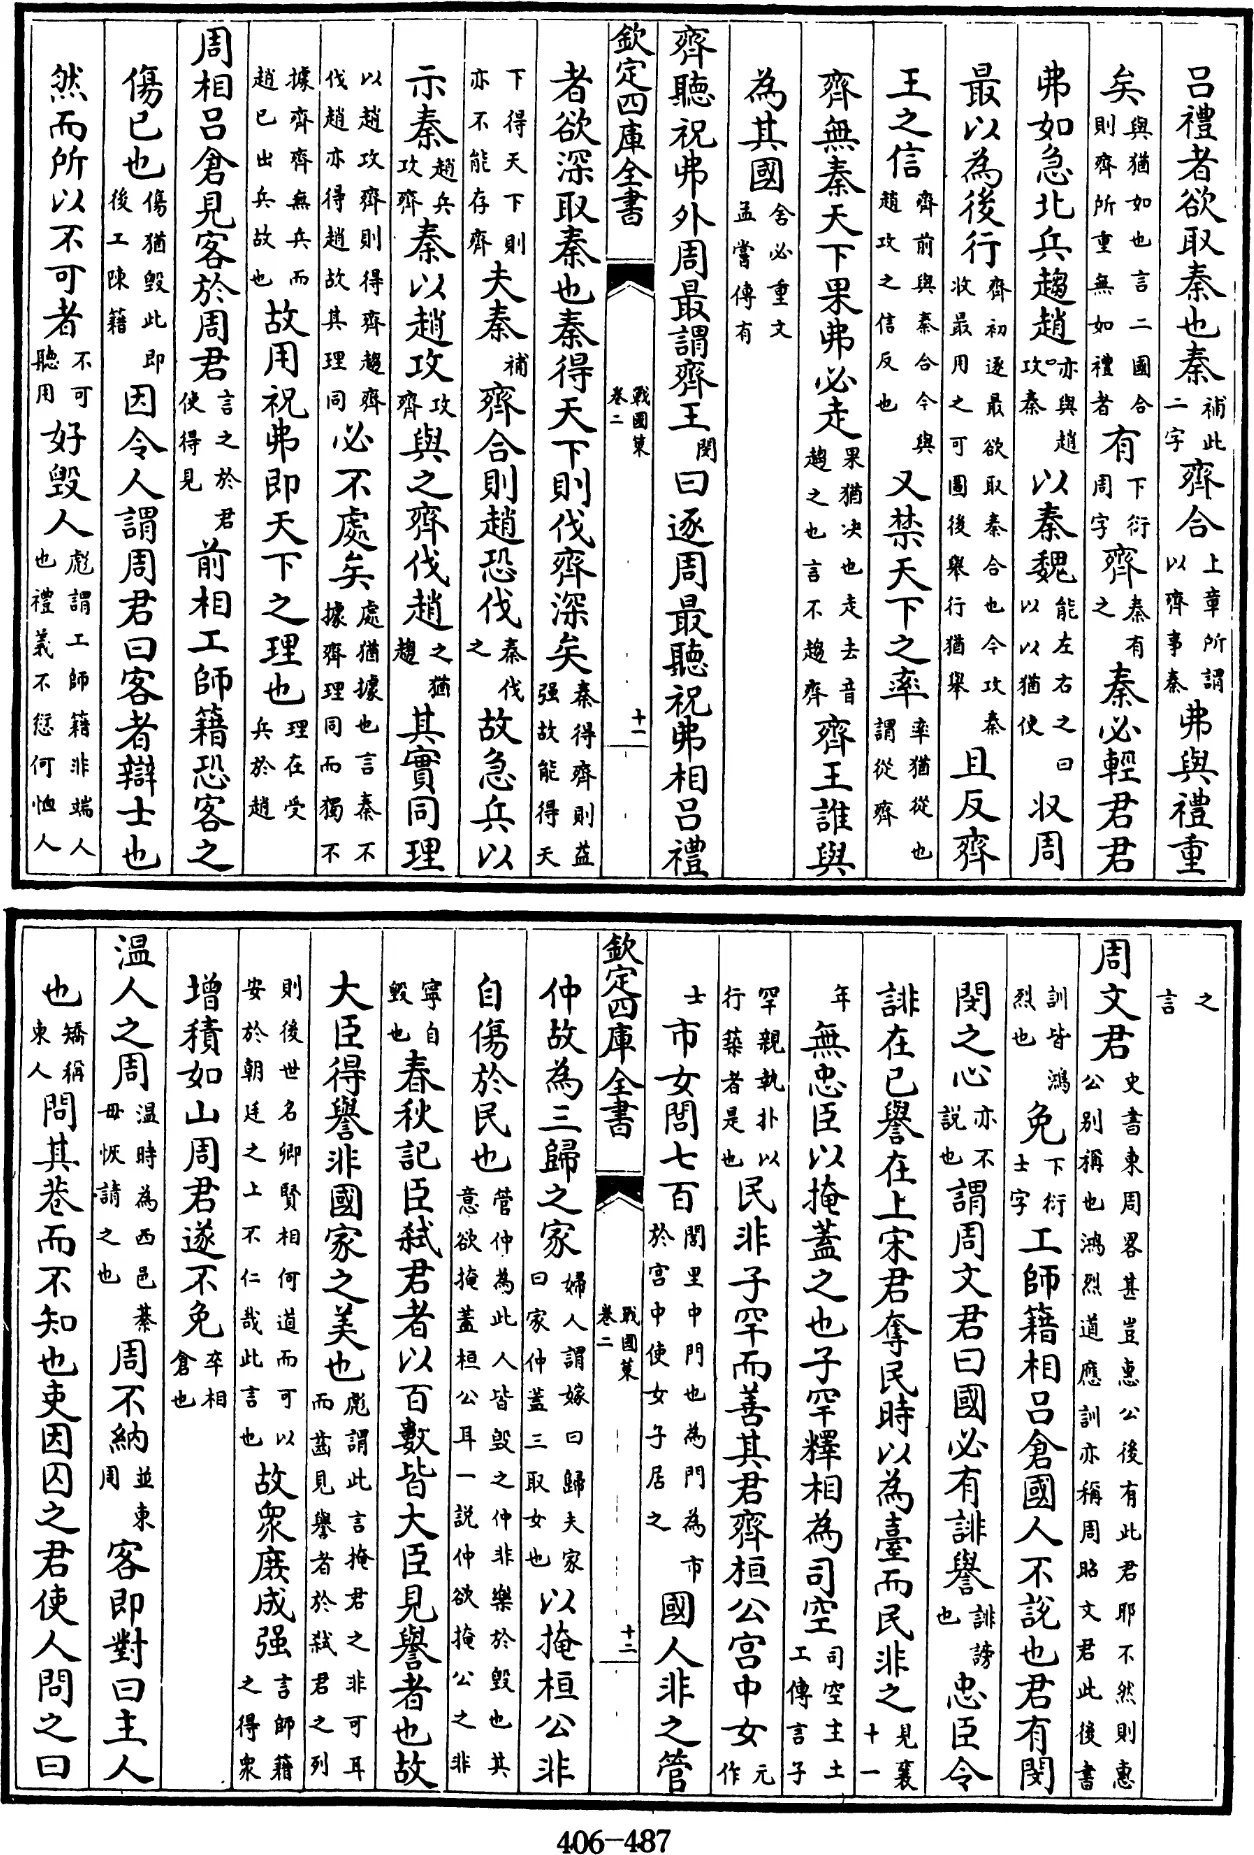 吕禮者欲取秦也秦補此二字齊合上章所謂以齊事秦弗與禮重
矣與猶如也言二國合則齊所重無如禮者有下衍周字齊秦有之秦必輕君君
弗如急北兵趨趙亦與趙攻秦以秦魏能左右之曰以以猶使収周
最以為後行齊初逐最欲取秦合也今攻秦收最用之可圖後舉行猶舉且反齊
王之信齊前與秦合今與趙攻之信反也又禁天下之率率猶從也謂從齊
齊無秦天下果弗必走果猶决也走去音趨之也言不趨齊齊王誰與
為其國舍必重文孟嘗傳有
齊聽祝弗外周最謂齊王閔曰逐周最聽祝弗相吕禮
欽定四庫全書 戰國策卷二 十一
者欲深取秦也秦得天下則伐齊深矣秦得齊則益强故能得天
下得天下則亦不能存齊夫秦補齊合則趙恐伐秦伐之故急兵以
示秦趙兵攻齊秦以趙攻攻齊與之齊伐趙之猶趨其實同理
以趙攻齊則得齊趨齊伐趙亦得趙故其理同必不處矣處猶據也言秦不據齊理同而獨不
據齊齊無兵而趙已出兵故也故用祝弗即天下之理也理在受兵於趙
周相吕倉見客於周君言之於君使得見前相工師籍恐客之
傷已也傷猶毁此即後工陳籍因令人謂周君曰客者辯士也
然而所以不可者不可聽用好毁人彪謂工師籍非端人也禮義不愆何恤人
之言
周文君史書東周畧甚豈惠公後有此君耶不然則惠公别稱也鴻烈道應訓亦稱周昭文君此後書
訓皆鴻烈也免下衍士字工師籍相吕倉國人不說也君有閔
閔之心亦不說也謂周文君曰國必有誹譽誹謗也忠臣令
誹在已譽在上宋君奪民時以為臺而民非之見襄十一
年無忠臣以掩蓋之也子罕釋相為司空司空主土工傳言子
罕親執扑以行築者是也民非子罕而善其君齊桓公宫中女元作
士市女閭七百閭里中門也為門為市於宫中使女子居之國人非之管
欽定四庫全書 戰國策卷二 十二
仲故為三歸之家婦人謂嫁曰歸夫家曰家仲蓋三取女也以掩桓公非
自傷於民也管仲為此人皆毁之仲非樂於毁也其意欲掩蓋桓公耳一説仲欲掩公之非
寧自毁也春秋記臣弑君者以百數皆大臣見譽者也故
大臣得譽非國家之美也彪謂此言掩君之非可耳而茲見譽者於弑君之列
則後世名卿賢相何道而可以安於朝廷之上不仁哉此言也故衆庻成强言師籍之得衆
增積如山周君遂不免卒相倉也
温人之周温時為西邑綦毋恢請之也周不納並東周客即對曰主人
也矯稱東人問其巷而不知也吏因囚之君使人問之曰
406-487